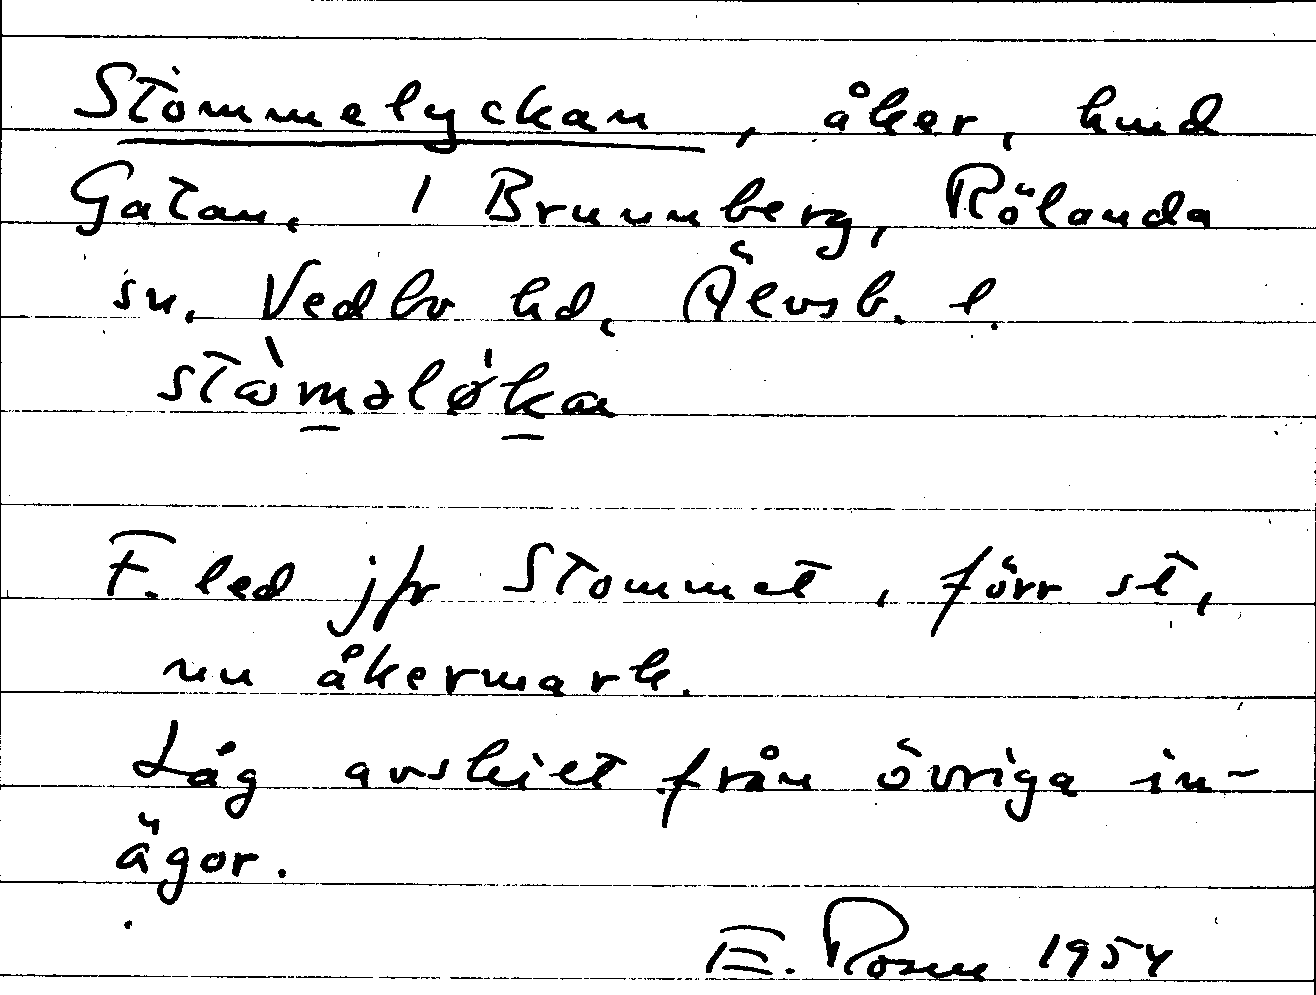 Stommelyckan, åker, hmd
Gatan, 1 Brunnberg, Rölanda
sn, Vedbo hd, Älvsb. l.
stὼmәlǿkan
F. led jfr Stommet, förr st,
nu åkermark.
Låg avskilt från övriga in-
ägor.
E. Rosen 1954